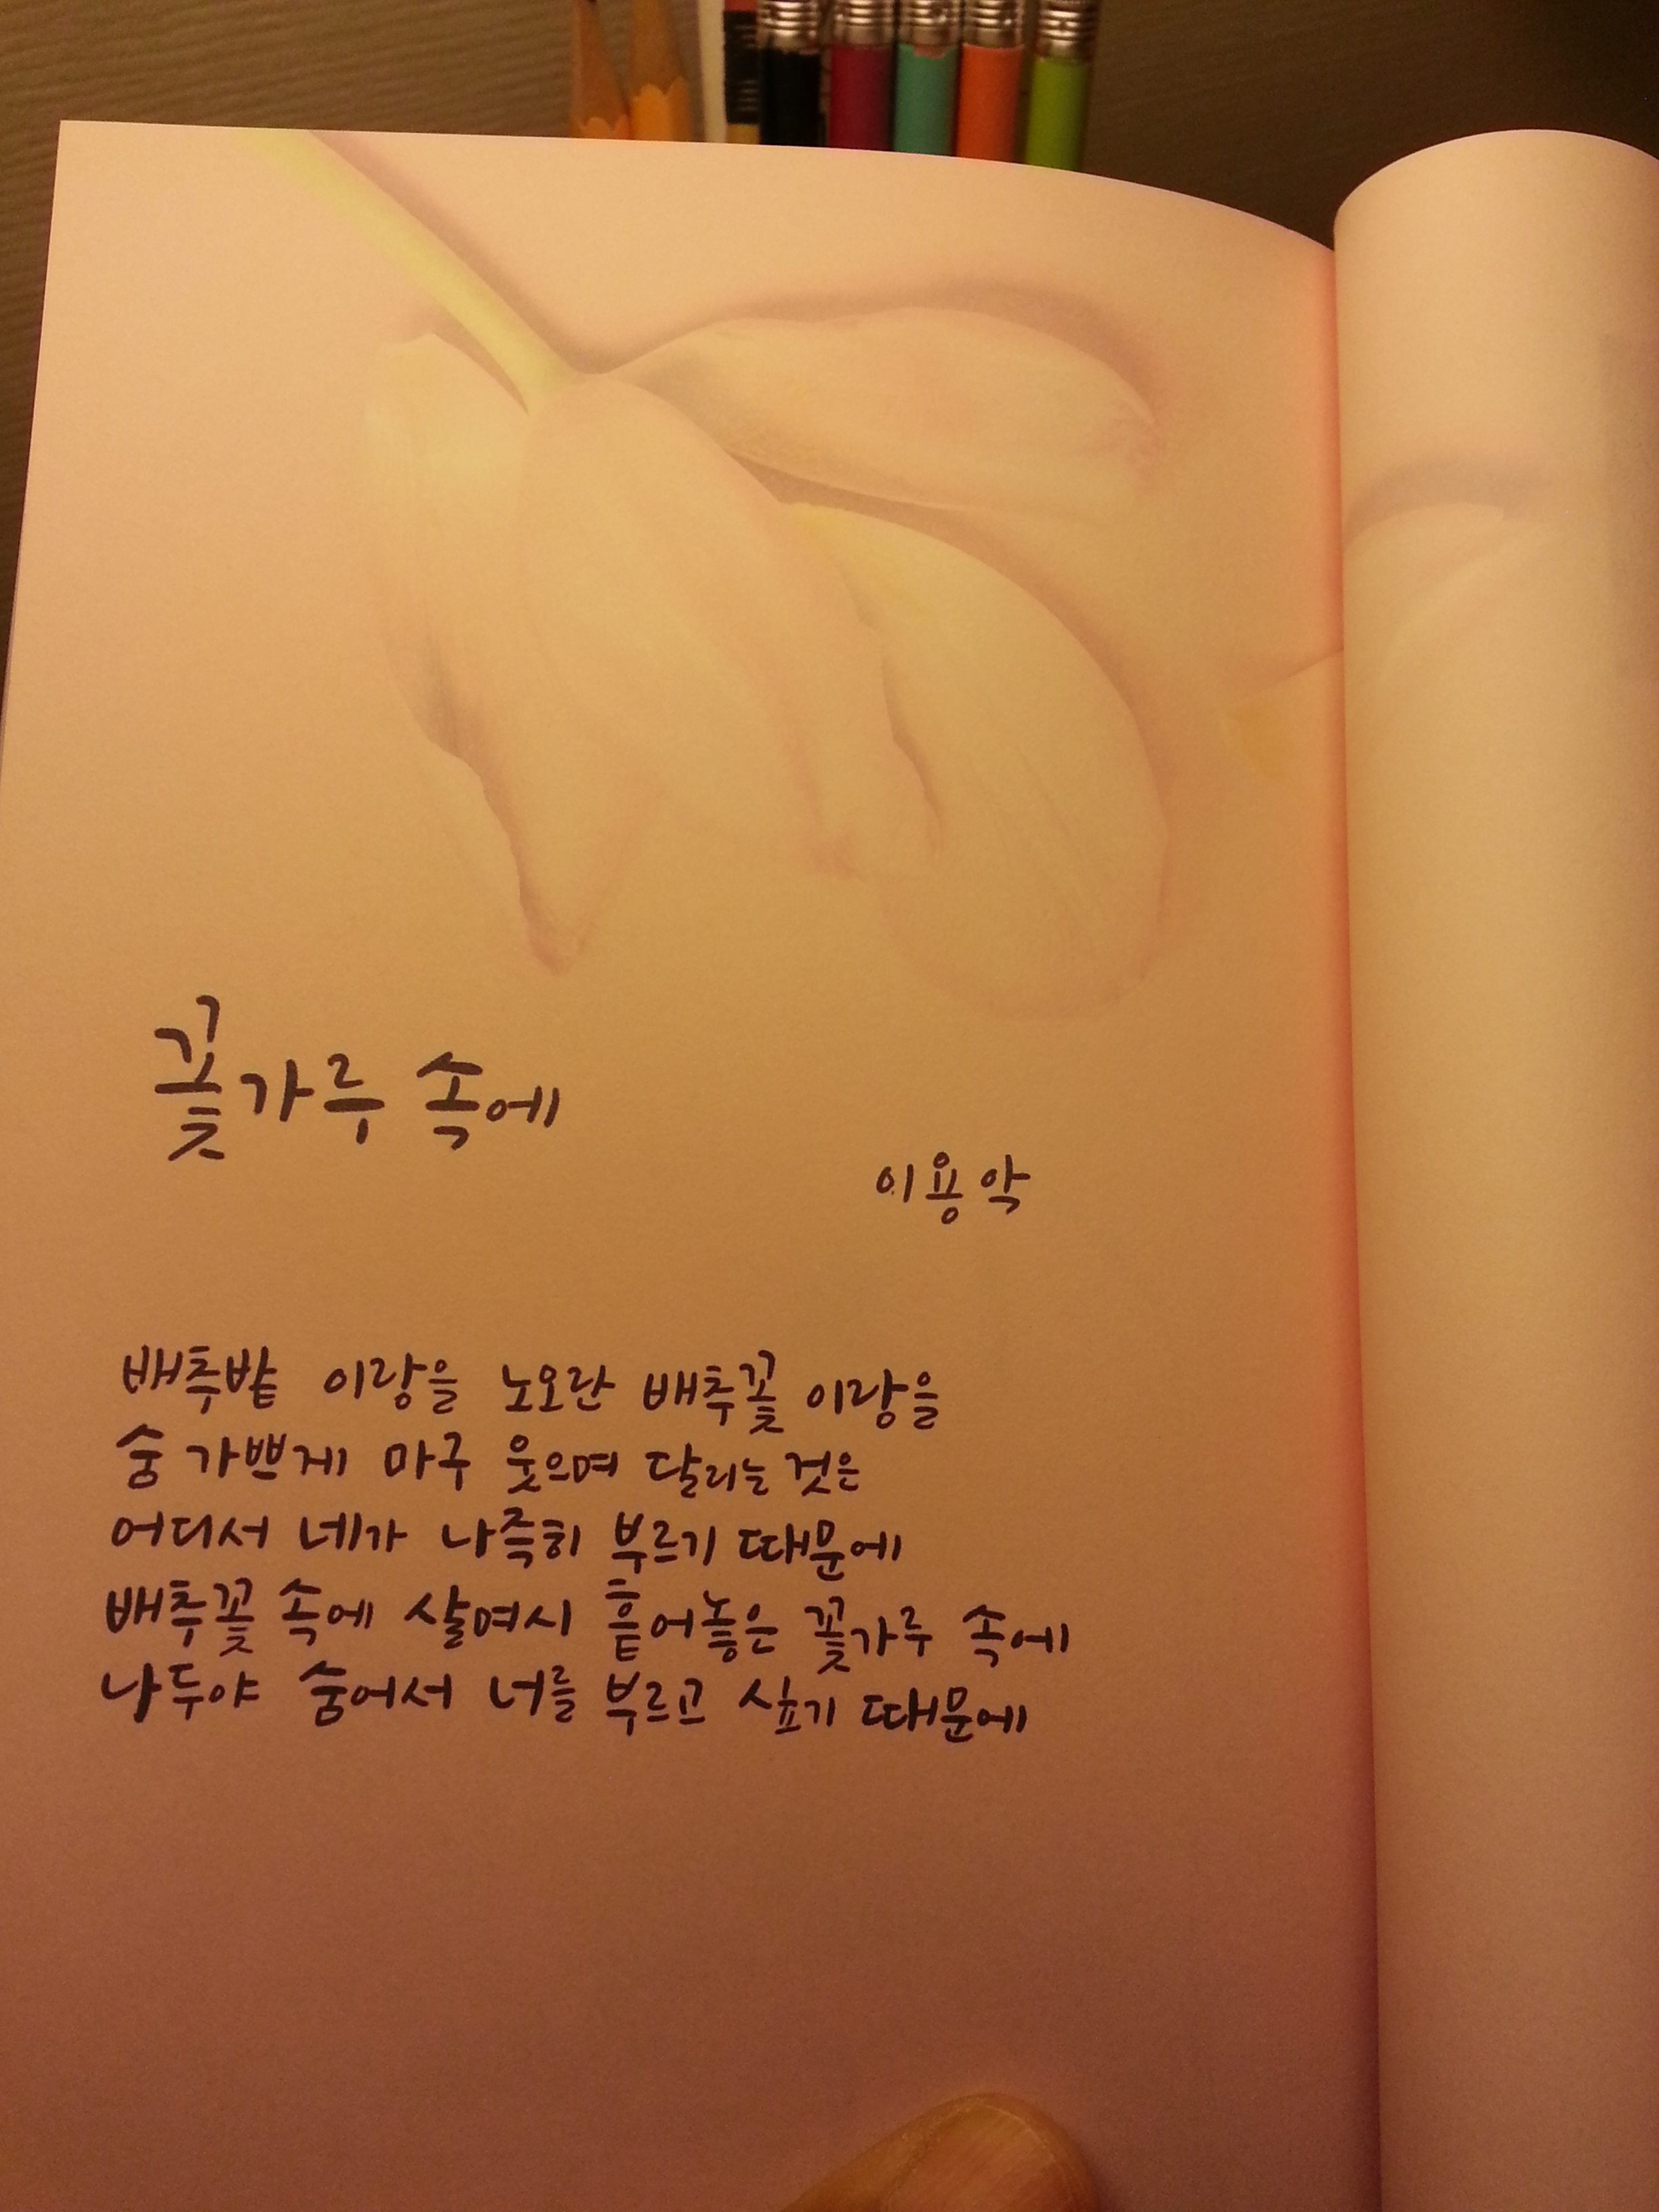 꽃가루 속에
이용악
배추밭 이랑을 노오란 배추꽃 이랑을
숨 가쁘게 마구 웃으며 달리는 것은
어디서 네가 나즉히 부르기 때문에
배추꽃 속에 살며시 흩어놓은 꽃가루 속에
나두야 숨어서 너를 부르고 싶기 때문에